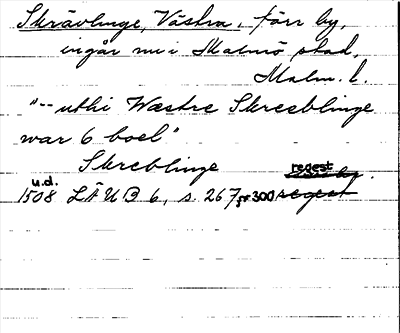 Skrävlinge, Västra, förr by,
ingår nu i Malmö stad,
Malm. l.
"-- uthi Wæstre Skreeblinge
war 6 boel"
Skreblinge regest
u.d.
1508 LÄUB 6, s. 267, nr 300 regest